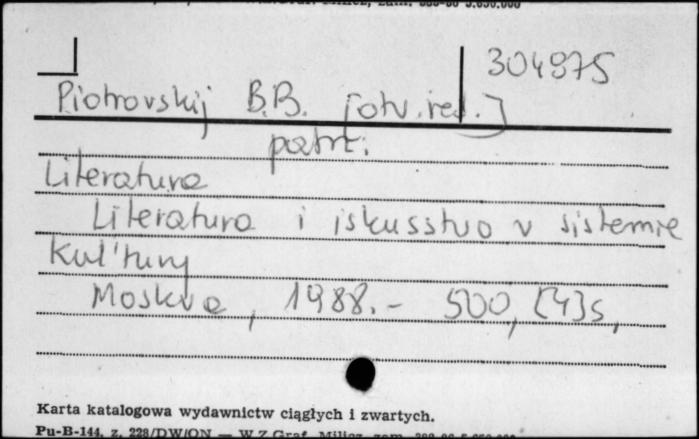 304975
Piotrovskij B.B. [otv. red.]
patrz:
Literatura
Literatura i iskusstvo v sistemie
kul'tury
Moskva, 1988. - 500, [4]s,
Karta katalogowa wydawnictw ciągłych i zwartych.
Pu-B-144, z. 228/DW/ON — W.Z.Graf. Milicz, zam.